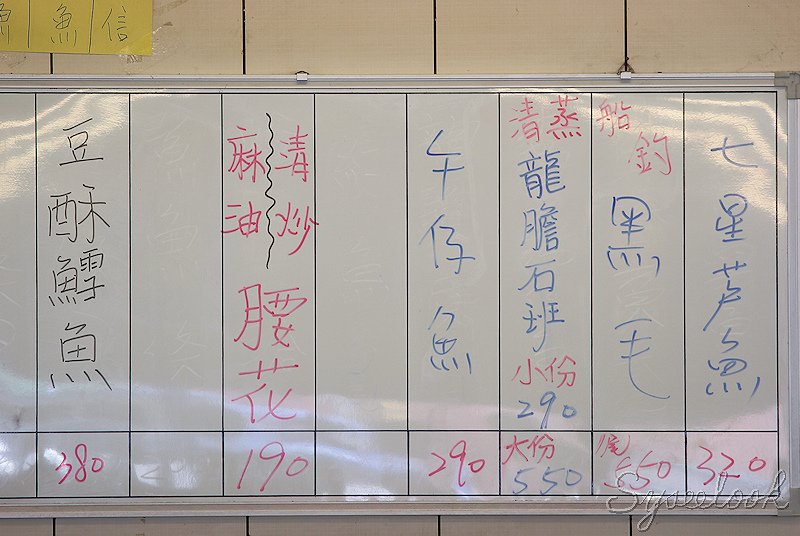 魚信
七星芦魚
320
船釣
黑毛
尾
550
清蒸
龍膽石班
小份
290
大份
550
午仔魚
290
清炒
麻油
腰花
190
豆酥鱈魚
380
Syseelook